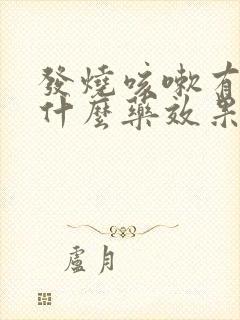 發燒咳嗽有
什麼藥效果
盧月